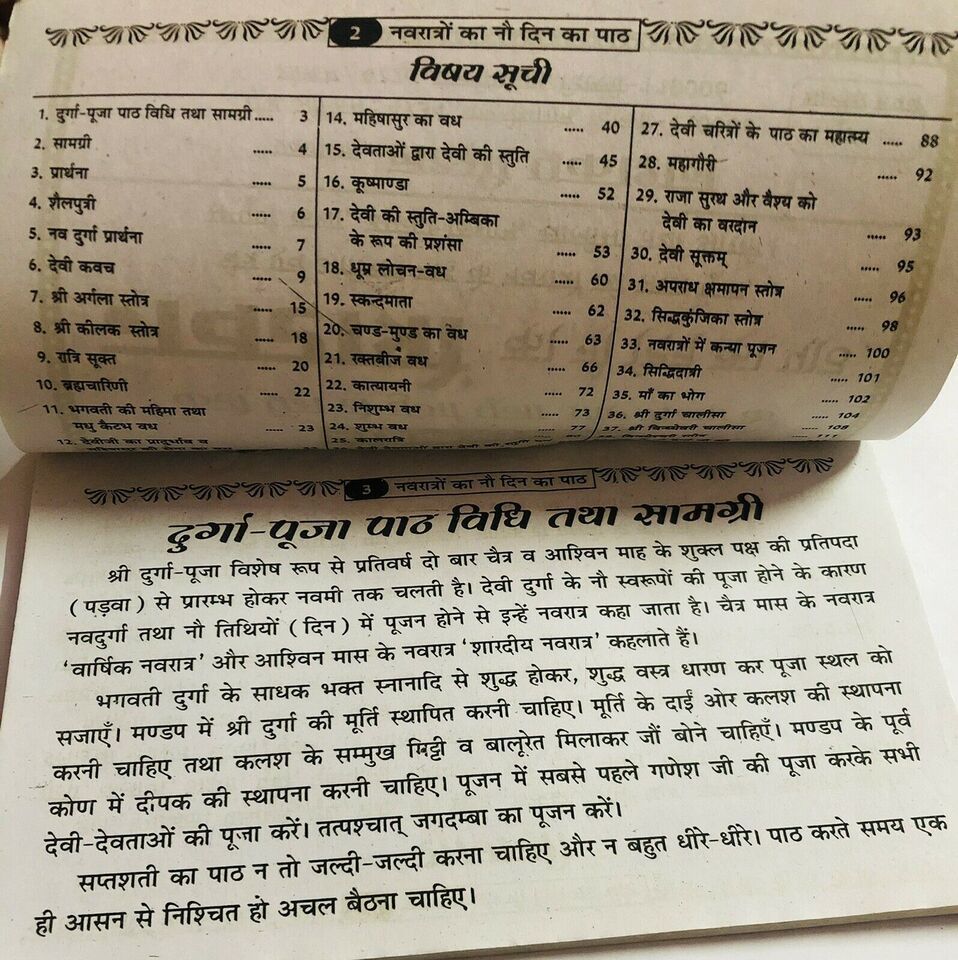 2 नवरात्रों का नौ दिन का पाठ
विषय सूची
1. दुर्गा-पूजा पाठ विधि तथा सामग्री..... 3
2. सामग्री ..... 4
3. प्रार्थना ..... 5
4. शैलपुत्री ..... 6
5. नव दुर्गा प्रार्थना ..... 7
6. देवी कवच ..... 9
7. श्री अर्गला स्तोत्र ..... 15
8. श्री कीलक स्तोत्र ..... 18
9. रात्रि सूक्त ..... 20
10. ब्रह्मचारिणी ..... 22
11. भगवती की महिमा तथा
मधु कैटभ वध ..... 23
12. देवीजी का प्रादुर्भाव व
14. महिषासुर का वध ..... 40
15. देवताओं द्वारा देवी की स्तुति ..... 45
16. कूष्माण्डा ..... 52
17. देवी की स्तुति-अम्बिका
के रूप की प्रशंसा ..... 53
18. धूम्र लोचन-वध ..... 60
19. स्कन्दमाता ..... 62
20. चण्ड-मुण्ड का वध ..... 63
21. रक्तबीज वध ..... 66
22. कात्यायनी ..... 72
23. निशुम्भ वध ..... 73
24. शुम्भ वध ..... 77
25. कालरात्रि
27. देवी चरित्रों के पाठ का महात्म्य ..... 88
28. महागौरी ..... 92
29. राजा सुरथ और वैश्य को
देवी का वरदान ..... 93
30. देवी सूक्तम् ..... 95
31. अपराध क्षमापन स्तोत्र ..... 96
32. सिद्धकुंजिका स्तोत्र ..... 98
33. नवरात्रों में कन्या पूजन ..... 100
34. सिद्धिदात्री ..... 101
35. माँ का भोग ..... 102
36. श्री दुर्गा चालीसा ..... 104
37. श्री विन्ध्येश्वरी चालीसा ..... 108
3 नवरात्रों का नौ दिन का पाठ
दुर्गा-पूजा पाठ विधि तथा सामग्री
श्री दुर्गा-पूजा विशेष रूप से प्रतिवर्ष दो बार चैत्र व आश्विन माह के शुक्ल पक्ष की प्रतिपदा
(पड़वा) से प्रारम्भ होकर नवमी तक चलती है। देवी दुर्गा के नौ स्वरूपों की पूजा होने के कारण
नवदुर्गा तथा नौ तिथियों (दिन) में पूजन होने से इन्हें नवरात्र कहा जाता है। चैत्र मास के नवरात्र
‘वार्षिक नवरात्र’ और आश्विन मास के नवरात्र ‘शारदीय नवरात्र’ कहलाते हैं।
भगवती दुर्गा के साधक भक्त स्नानादि से शुद्ध होकर, शुद्ध वस्त्र धारण कर पूजा स्थल को
सजाएँ। मण्डप में श्री दुर्गा की मूर्ति स्थापित करनी चाहिए। मूर्ति के दाईं ओर कलश की स्थापना
करनी चाहिए तथा कलश के सम्मुख मिट्टी व बालूरेत मिलाकर जौं बोने चाहिएँ। मण्डप के पूर्व
कोण में दीपक की स्थापना करनी चाहिए। पूजन में सबसे पहले गणेश जी की पूजा करके सभी
देवी-देवताओं की पूजा करें। तत्पश्चात् जगदम्बा का पूजन करें।
सप्तशती का पाठ न तो जल्दी-जल्दी करना चाहिए और न बहुत धीरे-धीरे। पाठ करते समय एक
ही आसन से निश्चित हो अचल बैठना चाहिए।